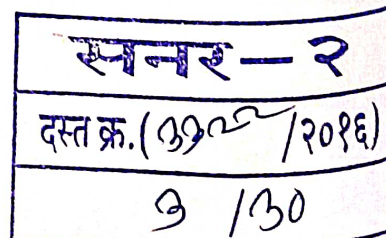 सनर - २
दस्त क्र. ( /२०१६)
३ /३०